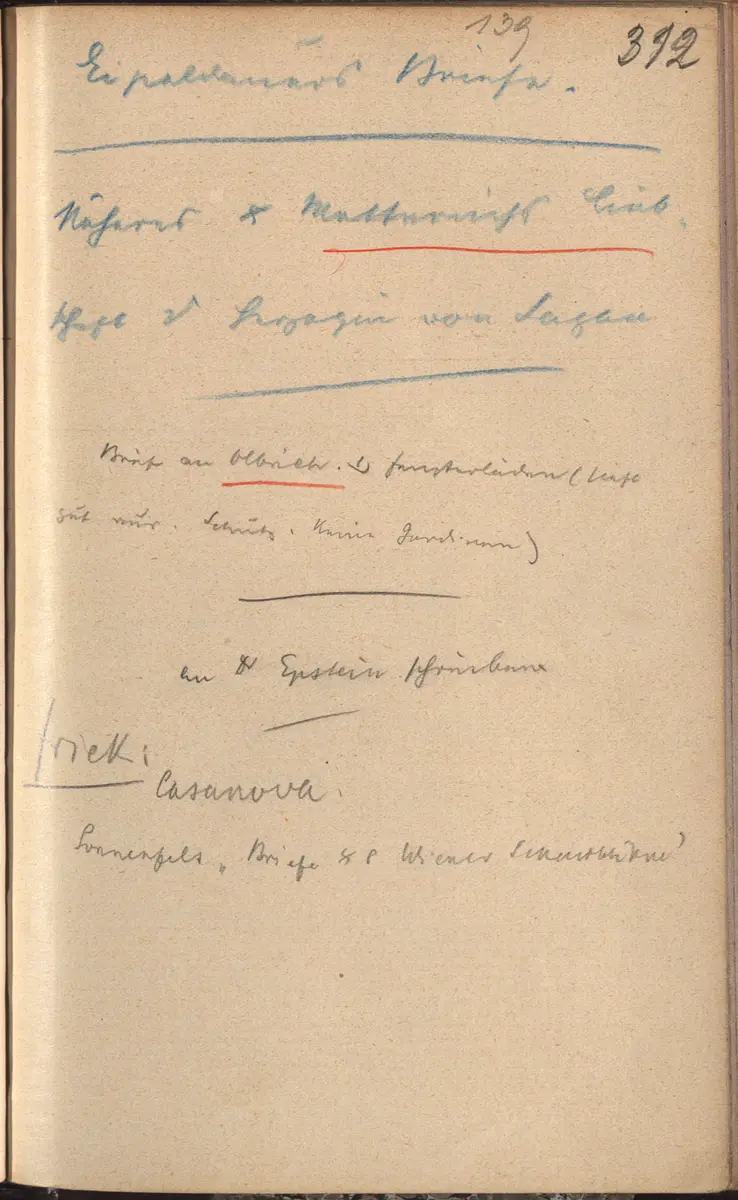 139
392
Eipeldauers Briefe.
Näheres Metternichs Lieb-
schaft Herzogin von Sagan
Brief an Olbrich. Fensterläden (
gut nur. Schutz. Keine Gardinen)
an Epstein schreiben
rick:
Casanova.
Sonnenfels „Briefe Wiener Schaubühne"